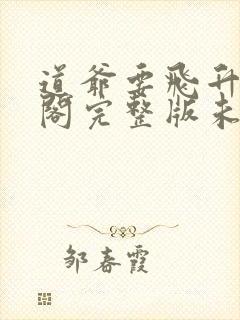 道爷要飞升
阁完整版未
邹春霞